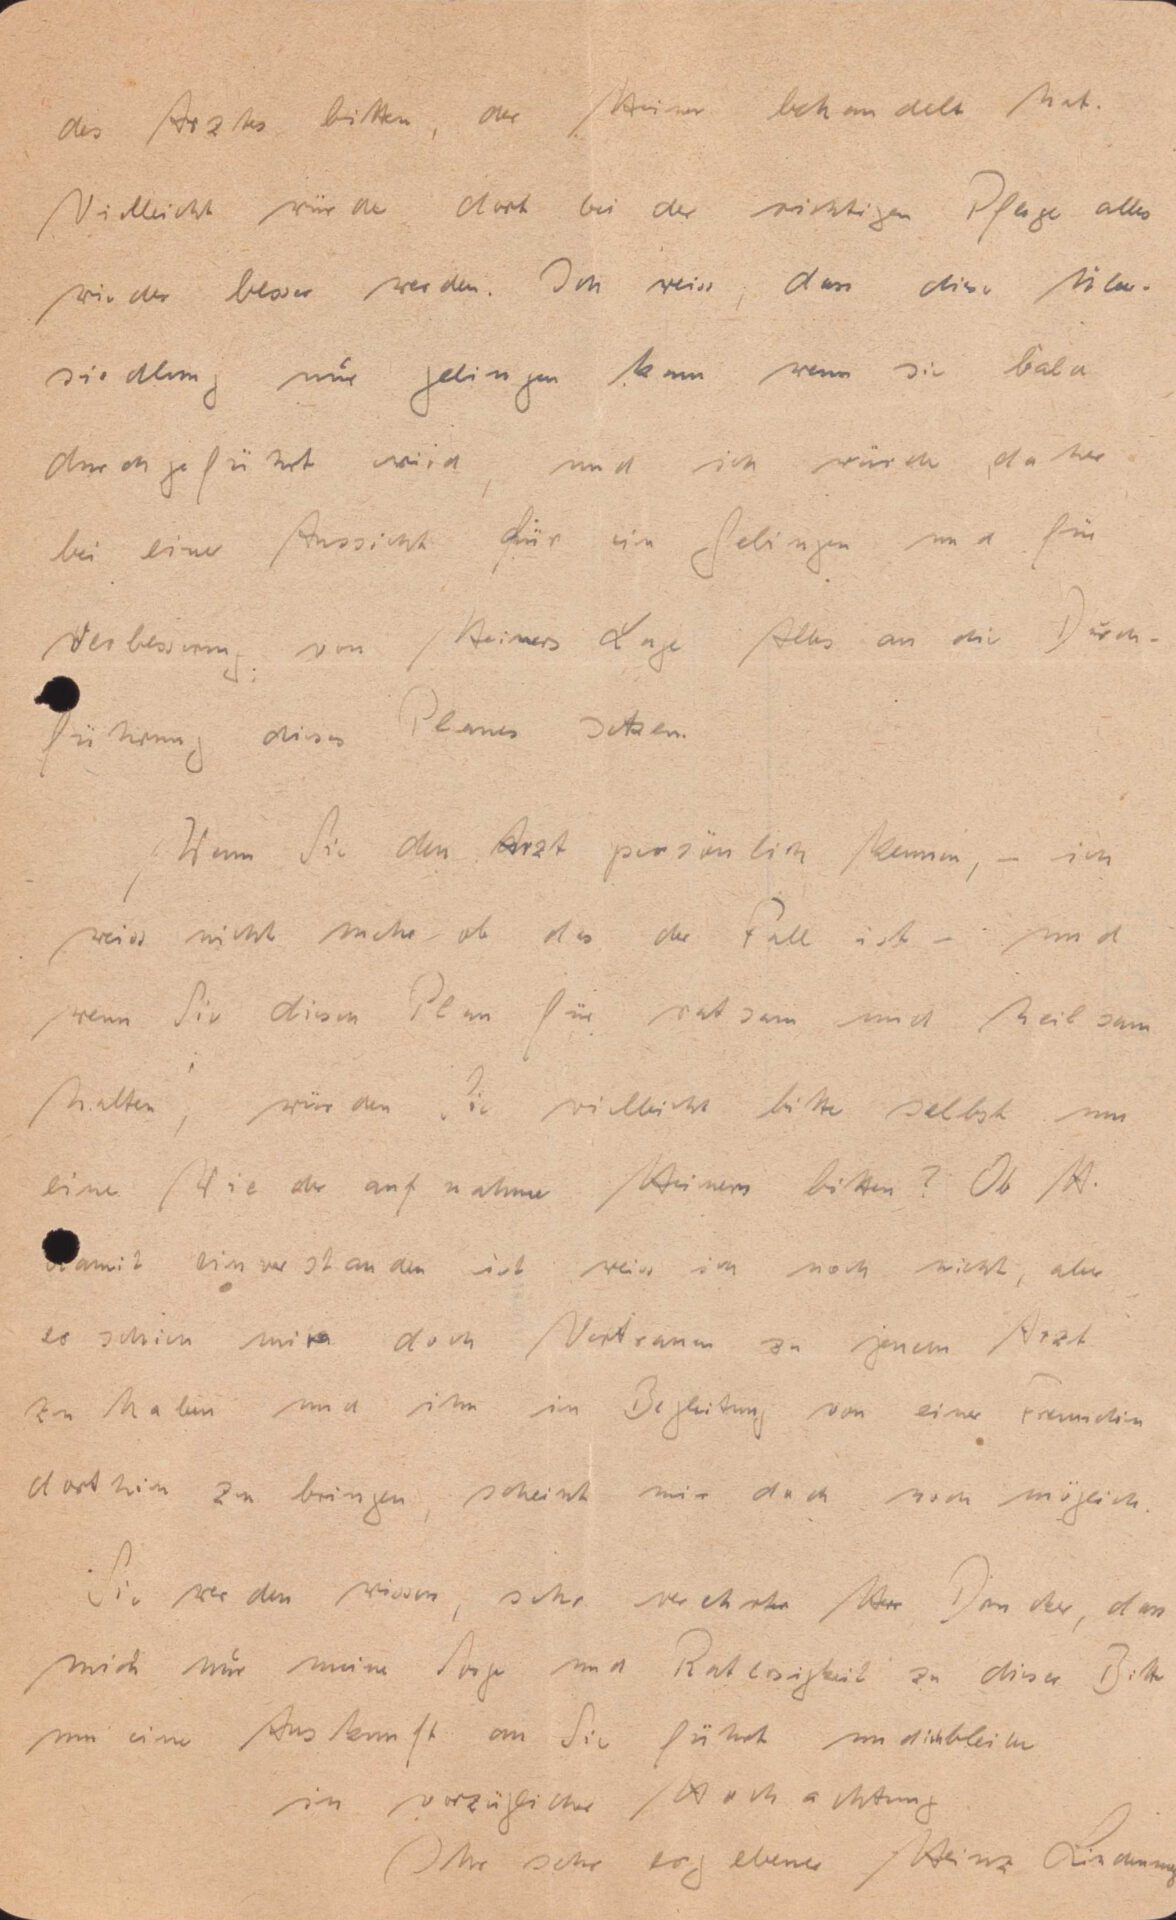 des Arztes bitten, der Heiner behandelt hat.
Vielleicht würde dort bei der richtigen Pflege alles
wieder besser werden. Ich weiss, dass diese Über-
siedlung nur gelingen kann wenn sie bald
durchgeführt wird, und ich würde daher
bei einer Aussicht für ein Gelingen und für
Verbesserung von Heiners Lage Alles an die Durch-
führung dieses Planes setzen.
Wenn Sie den Arzt persönlich kennen, – ich
weiss nicht mehr ob das der Fall ist – und
wenn Sie diesen Plan für ratsam und heilsam
halten, würden Sie vielleicht bitte selbst um
eine Wiederaufnahme Heiners bitten? Ob H.
damit einverstanden ist weiss ich noch nicht, aber
er schien mir doch Vertrauen zu jenem Arzt
zu haben und ihn in Begleitung von einer Freundin
dorthin zu bringen, scheint mir doch noch möglich.
Sie werden wissen, sehr verehrter Herr, dass
mich nur meine Sorge und Ratlosigkeit zu dieser Bitte
um eine Auskunft an Sie führt und ich bleibe
in vorzüglicher Hochachtung
Ihr sehr ergebener Heinz